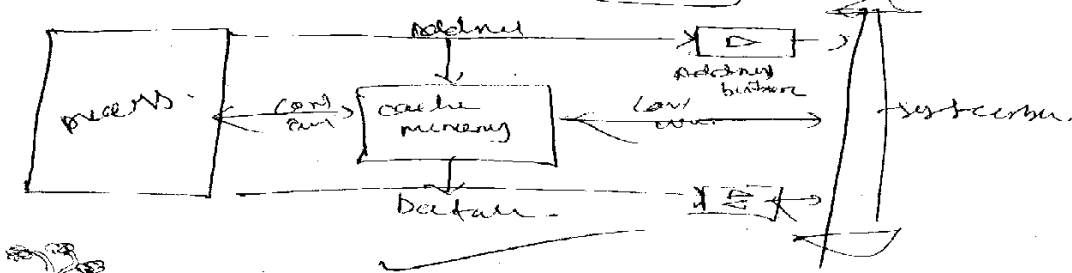 Address
Address
buffer
process.
control
cache
memory
control
system bus.
Data